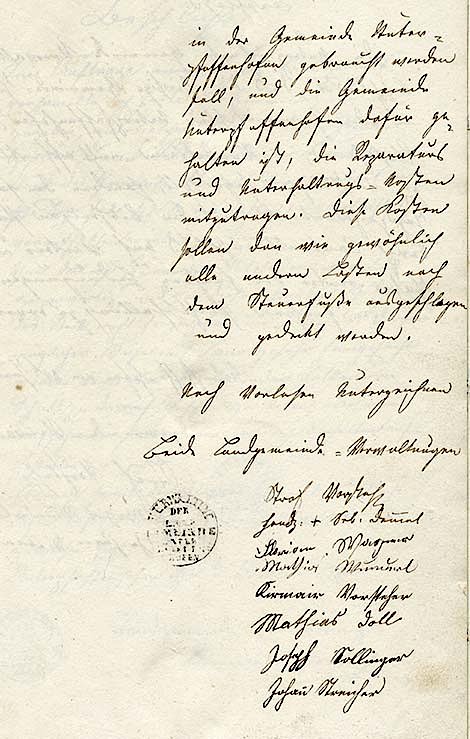 in der Gemeinde Unter-
pfaffenhofen gebraucht werden
soll, und die Gemeinde
Unterpfaffenhofen dafür ge-
halten ist, die Reparaturs
und Unterhaltungs-Kosten
mitzutragen. Diese Kosten
sollen dan wie gewöhnlich
alle andern Lasten nach
dem Steuerfuße ausgeschlagen
und gedeckt werden.
Nach Vorlesen Unterzeichnen
Beide Landgemeinde-Verwaltungen
Vorsteher
Handz. + Seb.
Florian Wagner
Mathias
Kirmair Vorsteher
Mathias Doll
Joseph Sollinger
Johan Streicher
DER
LAND
GEMEINDE